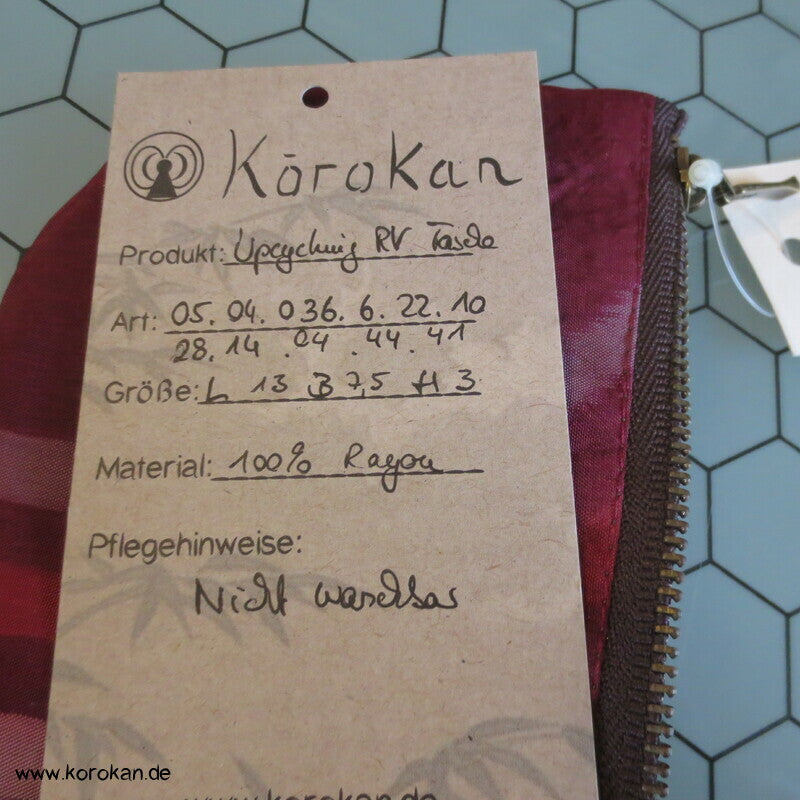 Kōrokan
Produkt: Upcycling RV Tasche
Art: 05. 04. 036. 6. 22. 10
28. 14 . 04 . 44. 41
Größe: L 13 B 7,5 H 3
Material: 100% Rayon
Pflegehinweise:
Nicht waschbar
www.korokan.de
www.korokan.de